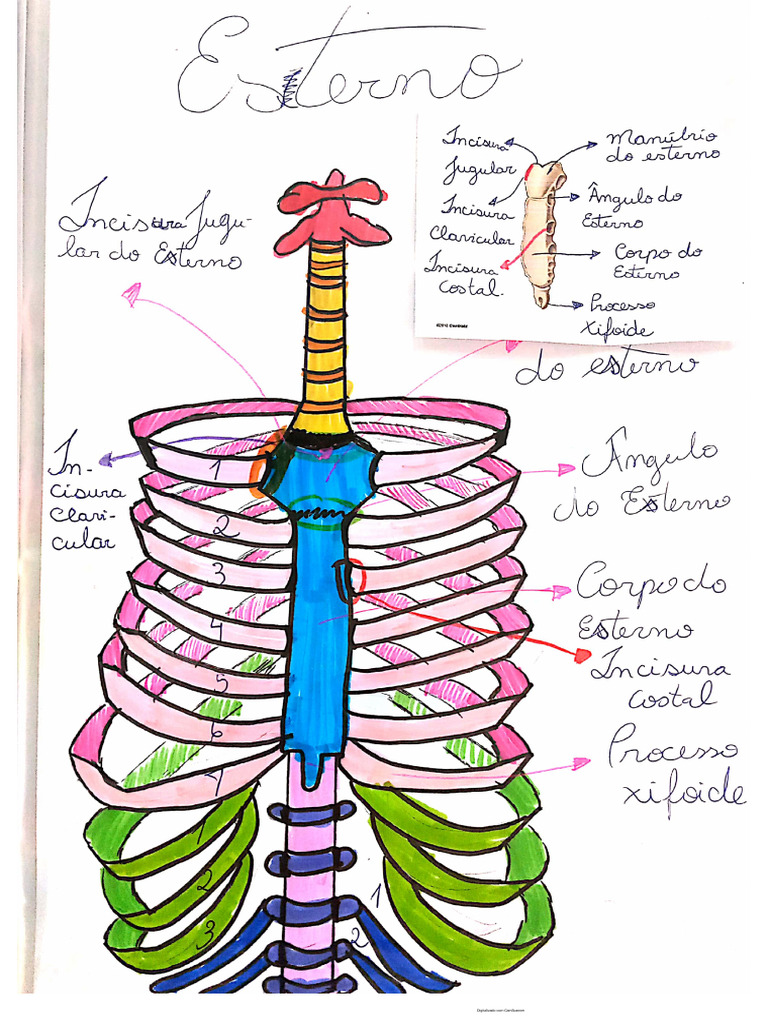 Esterno
Incisura
Jugular
Incisura
Clavicular
Incisura
Costal.
Manúbrio
do esterno
Ângulo do
Esterno
Corpo do
Esterno
Processo
Xifoide
do esterno
Incisura Jugu-
lar do Esterno
In-
cisura
Clavi-
cular
1
2
3
4
5
6
7
1
2
3
1
2
Ângulo
do Esterno
Corpo do
Esterno
Incisura
costal
Processo
xifoide
Digitalizado com CamScanner